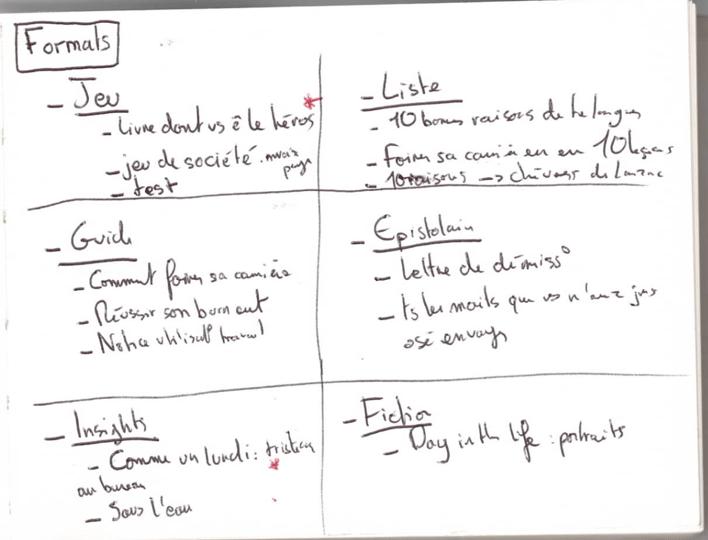 Formats
- Jeu
- Livre dont vs ê le héros *
- jeu de société.
- test
- Liste
- 10 bonnes raisons de
- Foirer sa carrière en en 10 leçons
- 10 raisons ->
- Guide
- Comment foirer sa carrière
- Réussir son burn out
- Notice travail
- Epistolaire
- Lettre de démiss°
- Ts les mails que vs n'avez jms
osé envoyer
- Insights
- Comme un lundi :
au bureau *
- Sous l'eau
- Fiction
- Day in th life : portraits